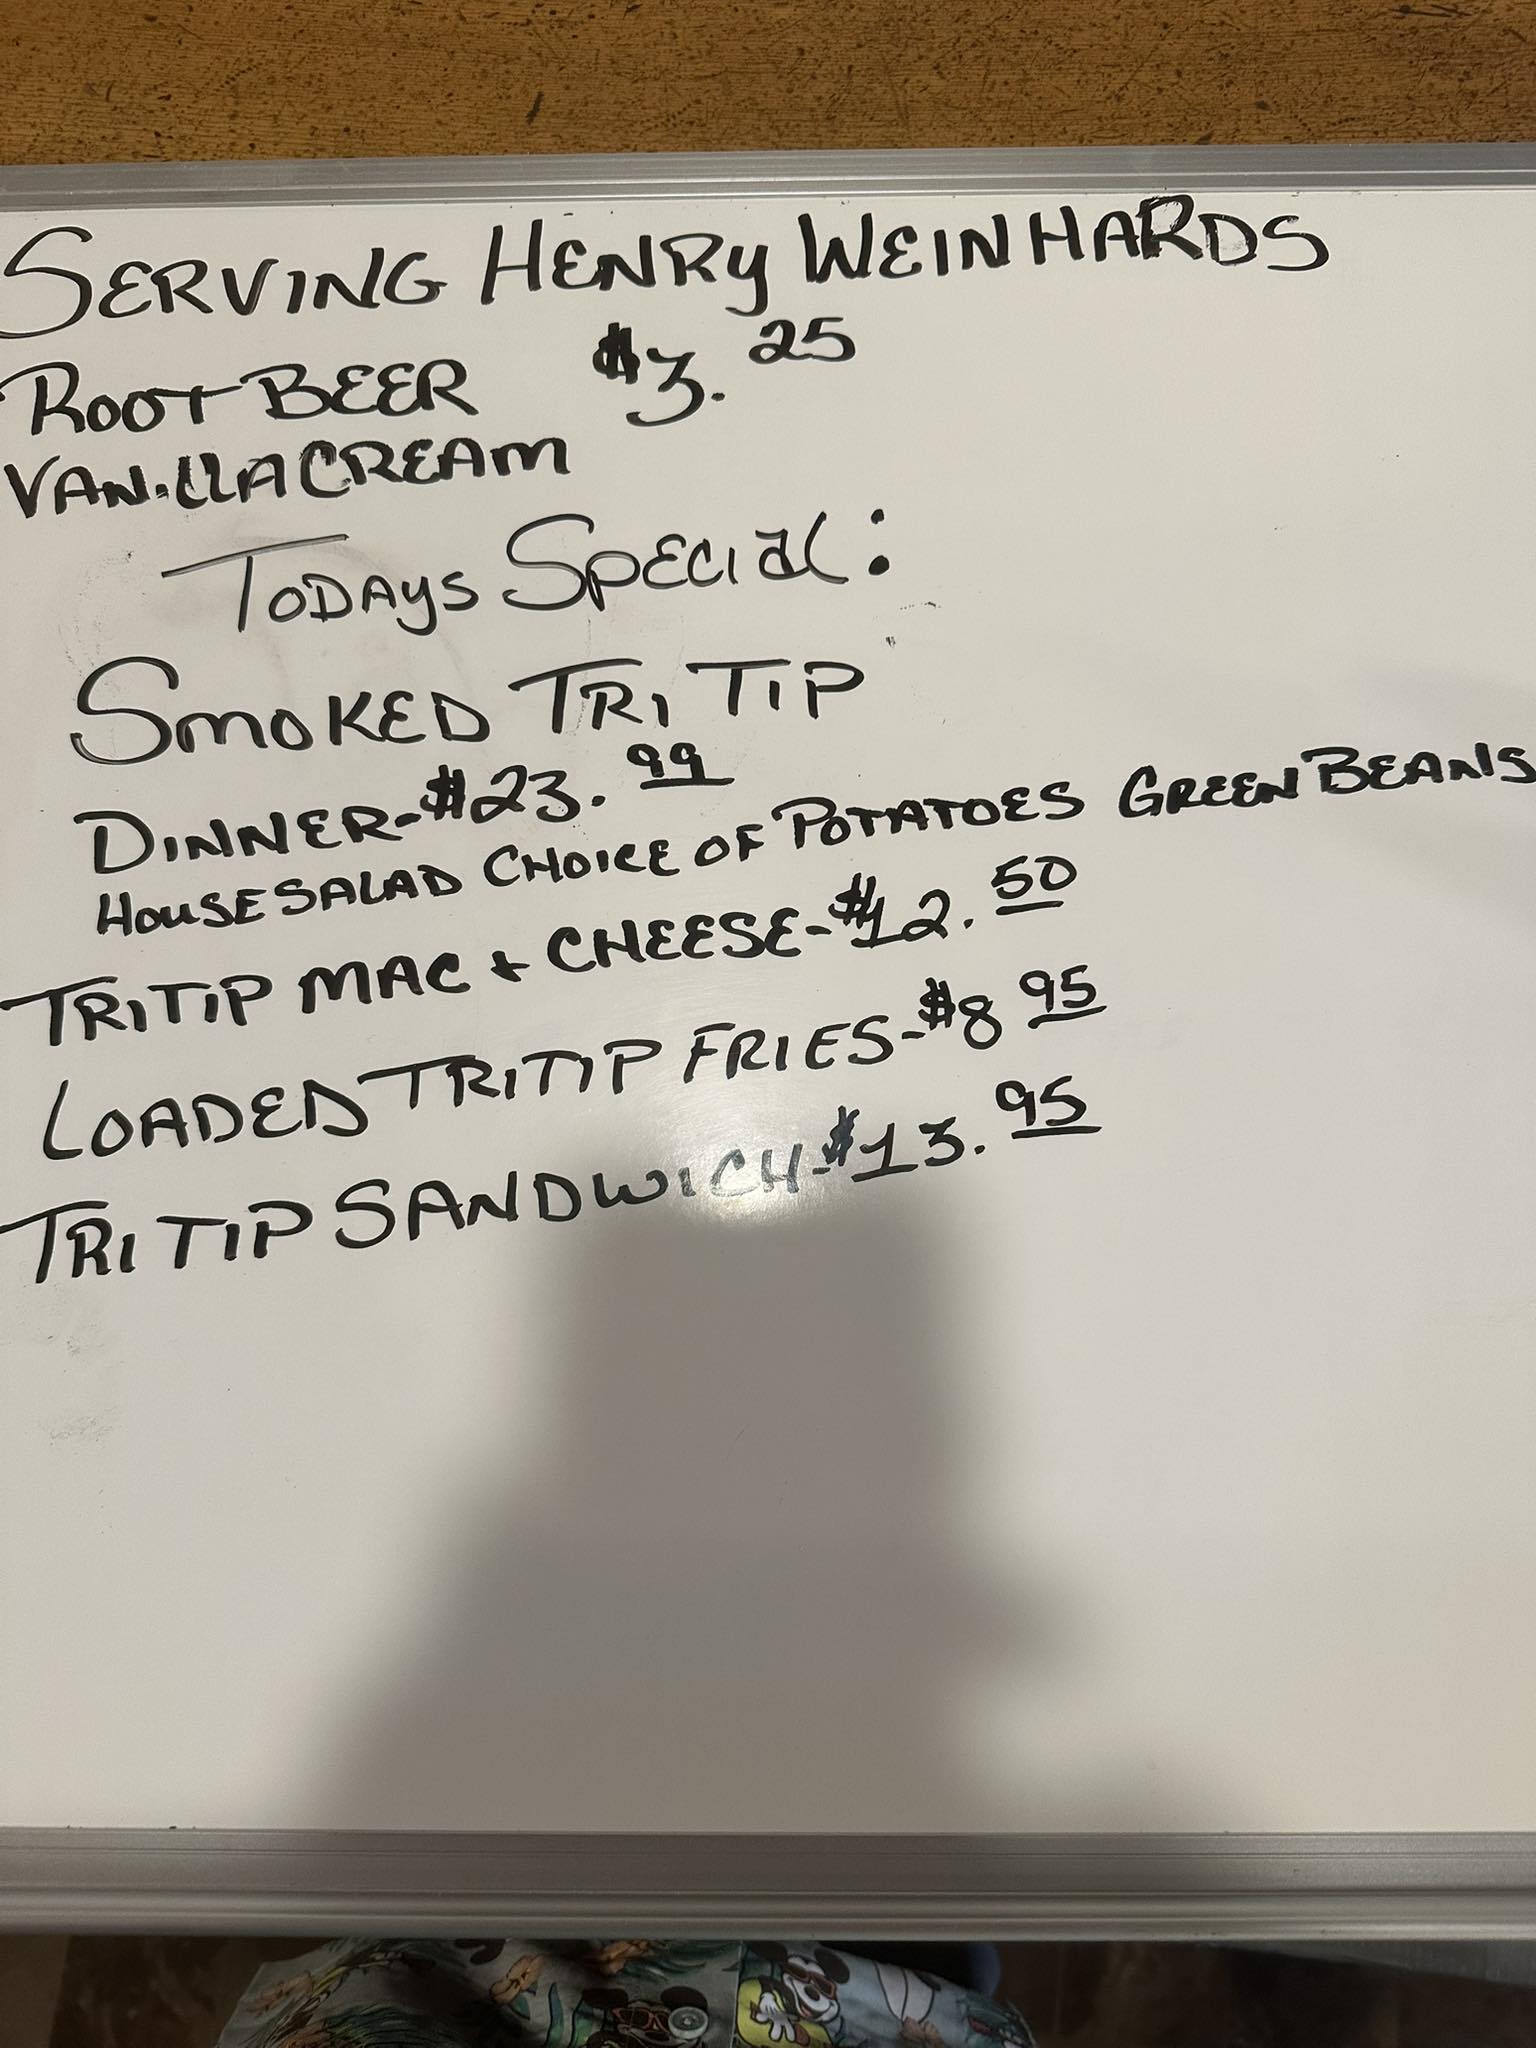 SERVING HENRY WEINHARDS
ROOT BEER $3.25
VANILLA CREAM
TODAYS SPECIAL:
SMOKED TRI TIP
DINNER-$23.99
HOUSE SALAD CHOICE OF POTATOES GREEN BEANS
TRI TIP MAC + CHEESE-$12.50
LOADED TRI TIP FRIES-$8 95
TRI TIP SANDWICH-$13.95